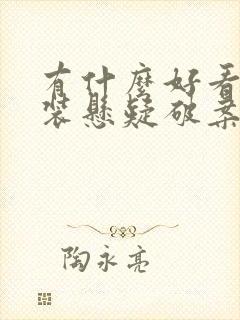 有什麼好看
裝懸疑破案
陶永亮